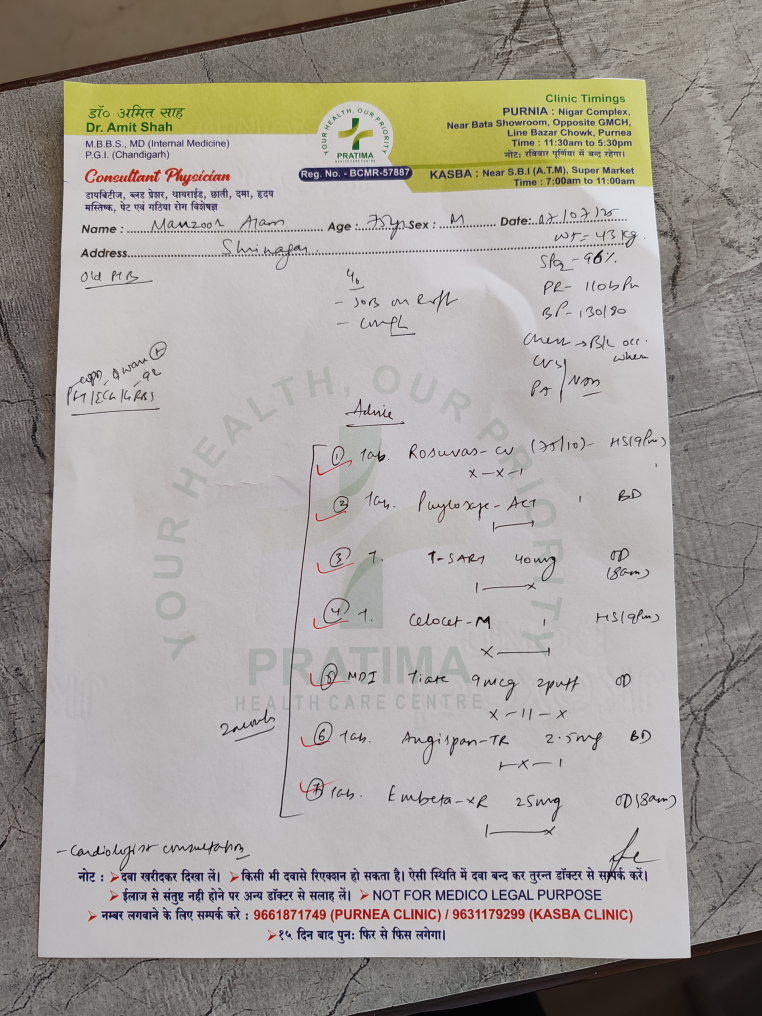 डॉ० अमित साह
Dr. Amit Shah
M.B.B.S., MD (Internal Medicine)
P.G.I. (Chandigarh)
Consultant Physician
डायबिटीज, ब्लड प्रेशर, थायराईड, छाती, दमा, हृदय
मस्तिष्क, पेट एवं गठिया रोग विशेषज्ञ
YOUR HEALTH, OUR PRIORITY
PRATIMA
HEALTH CARE CENTRE
Reg. No. - BCMR-57887
Clinic Timings
PURNIA : Nigar Complex,
Near Bata Showroom, Opposite GMCH,
Line Bazar Chowk, Purnea
Time : 11:30am to 5:30pm
नोट: रविवार पूर्णिया में बन्द रहेगा।
KASBA : Near S.B.I (A.T.M), Super Market
Time : 7:00am to 11:00am
Name : Manzoor Alam Age : 75yrs Sex : M Date: 07/07/25
Address Shrinagar
WT = 43 kg.
SPO2 - 96%
PR - 110 bpm
BP - 130/80
Chest → B/L occ.
CVS
PA NAD
Old
c/o
- SOB on
- cough
Advice
YOUR HEALTH, OUR PRIORITY
PRATIMA
HEALTH CARE CENTRE
① Tab. Rosuvas-CV (75/10) - HS (9pm)
x - x - 1
② Tab. - ACT 1 BD
③ T. T-SART 40mg OD (8am)
1 — x
④ T. Celocet-M 1 HS (9pm)
x — 1
⑤ MDI Tiate 9mcg 2puff OD
x - 11 - x
⑥ Tab. Angispan-TR 2.5mg BD
1 - x - 1
⑦ Tab. Embeta-XR 25mg OD (8am)
1 — x
- Cardiologist consultation
नोट : ➤दवा खरीदकर दिखा लें। ➤किसी भी दवासे रिएक्शन हो सकता है। ऐसी स्थिति में दवा बन्द कर तुरन्त डॉक्टर से सम्पर्क करें।
➤ईलाज से संतुष्ट नही होने पर अन्य डॉक्टर से सलाह लें। ➤ NOT FOR MEDICO LEGAL PURPOSE
➤ नम्बर लगवाने के लिए सम्पर्क करे : 9661871749 (PURNEA CLINIC) / 9631179299 (KASBA CLINIC)
➤१५ दिन बाद पुन: फिर से फिस लगेगा।